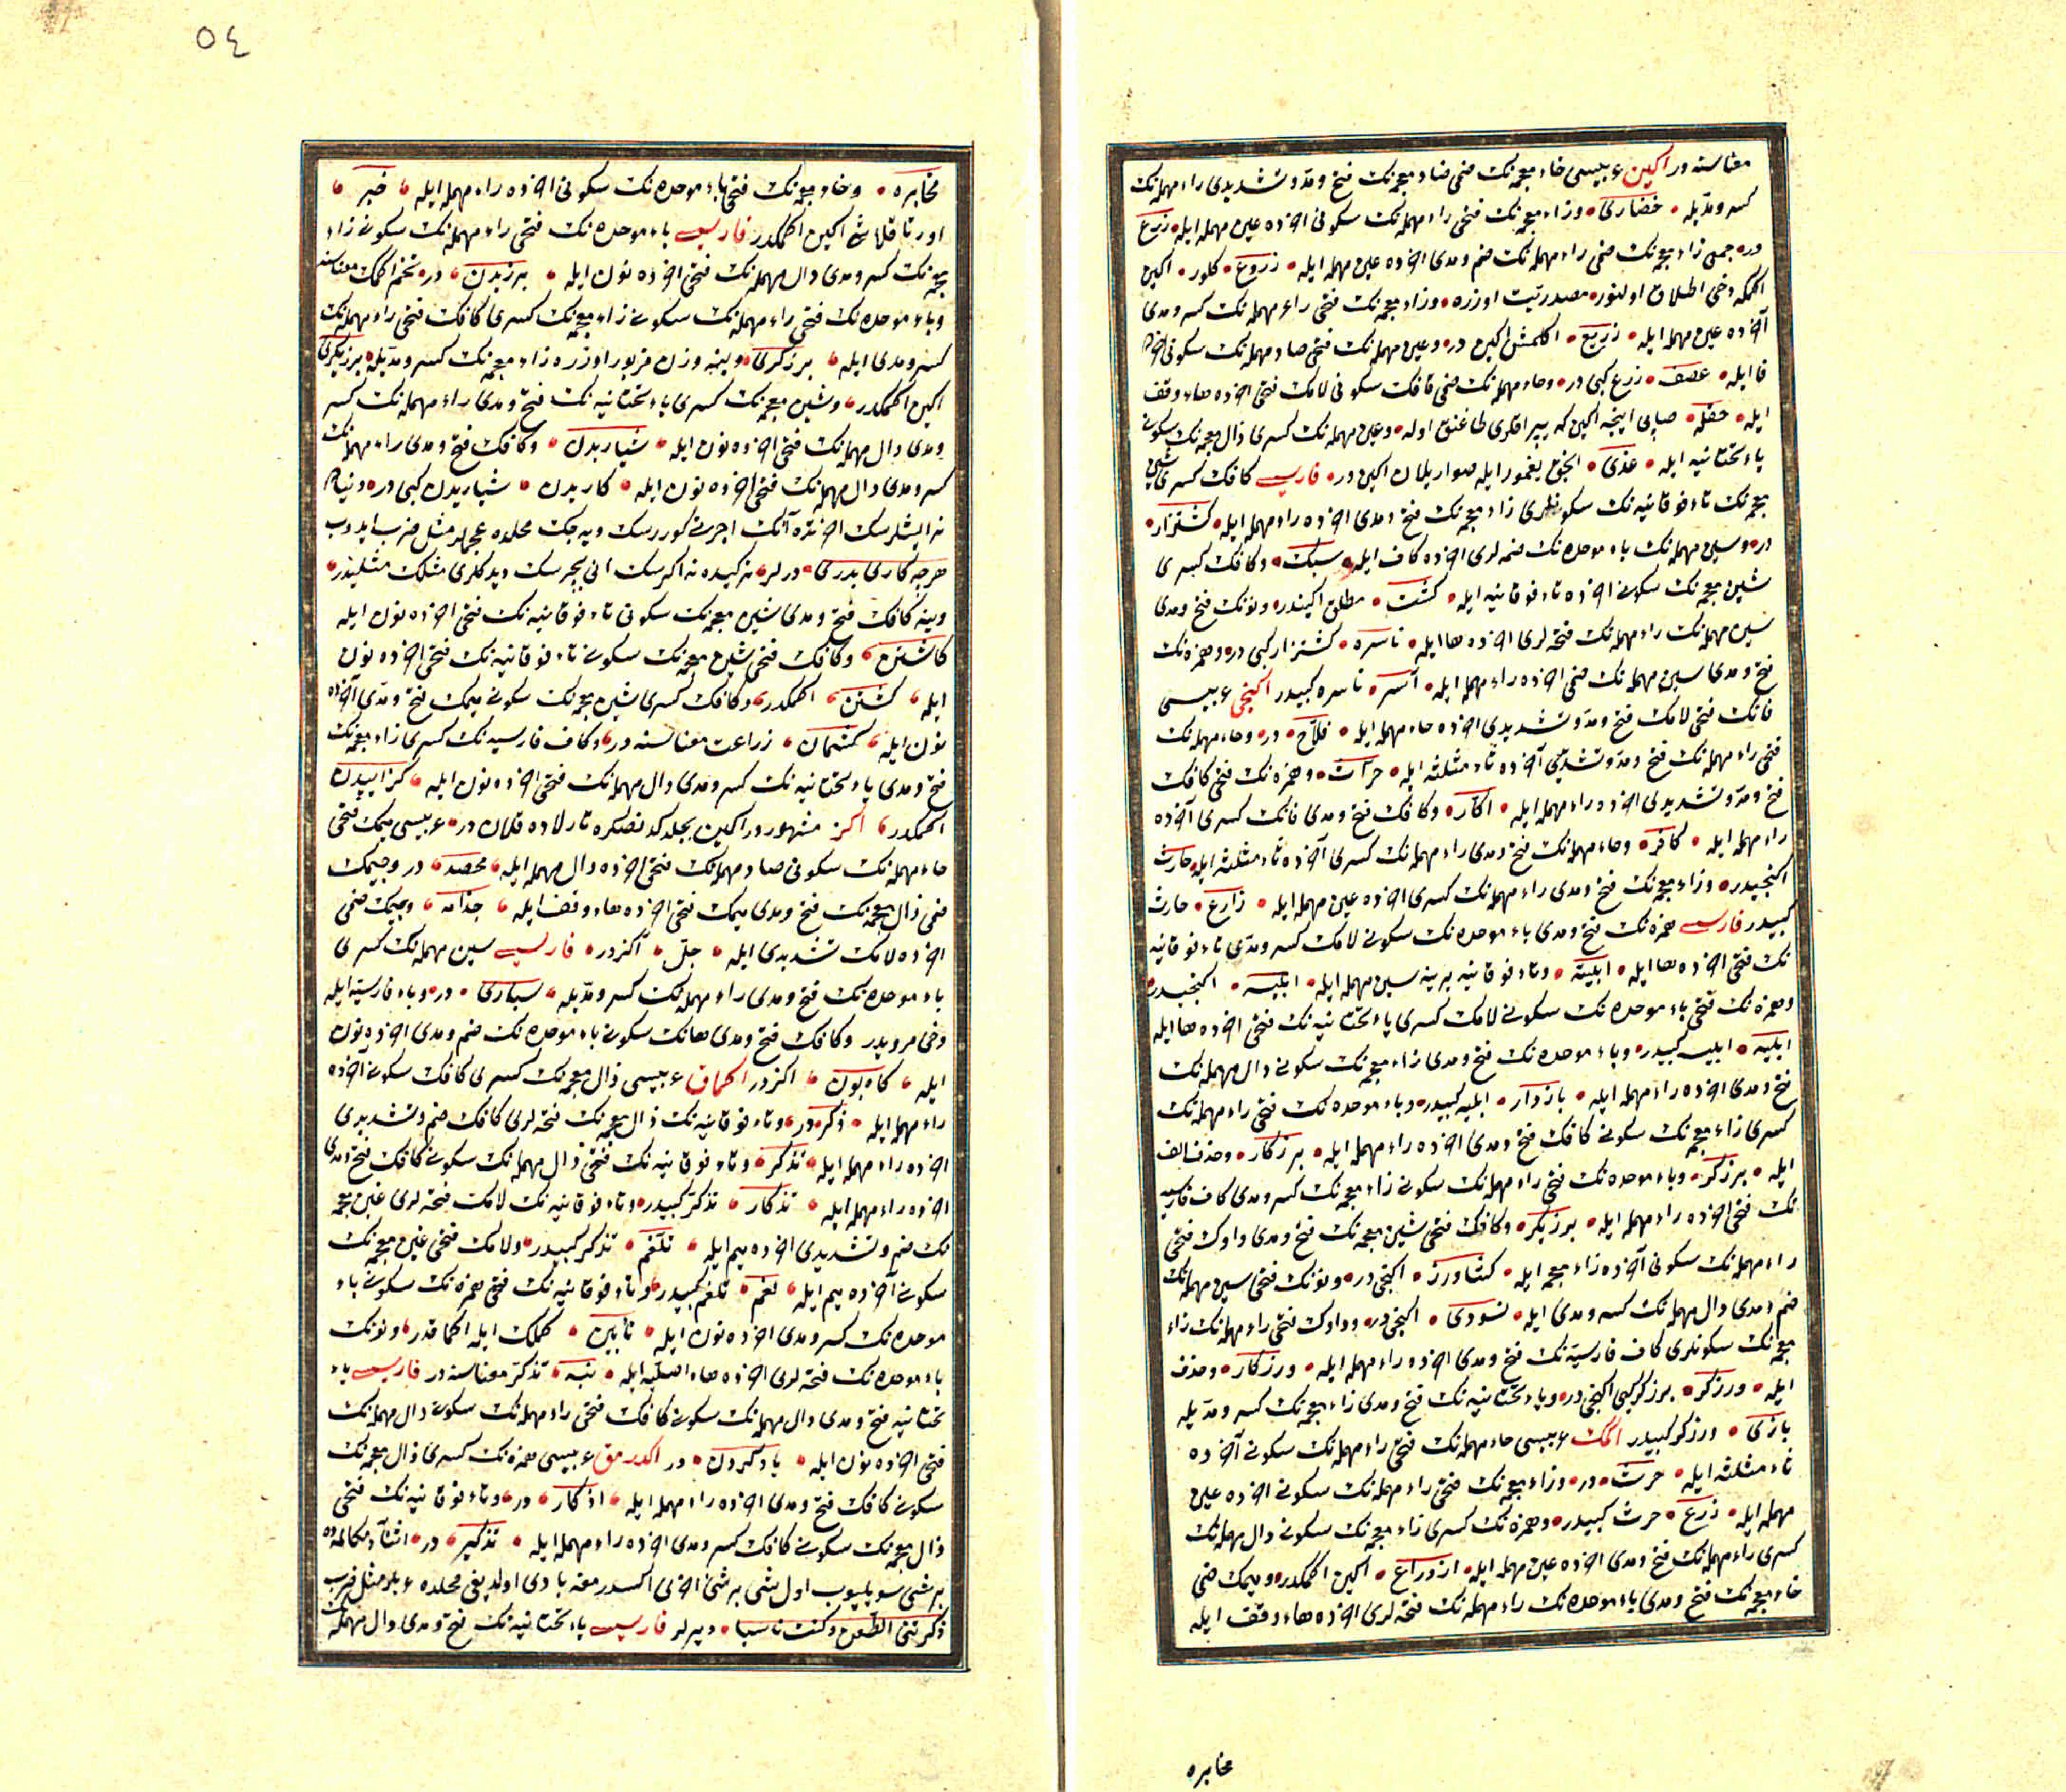 معناسنه در اکین عربیسی خاء معجمه نک ضمی ضاد معجمه نک فتح و مد و تشدیدی راء مهمله نک
کسر و مدّیله خضاری وزاء معجمه نک فتحی راء مهمله نک سکونی اخرده عین مهمله ایله زرع
در جمعی زاء معجمه نک ضمی راء مهمله نک ضم و مدی اخرده عین مهمله ایله زروع کلور اکین
اکمکه دخی اطلاق اولنور مصدریت اوزره وزاء معجمه نک فتحی راء مهمله نک کسر و مدی
آخرده عین مهمله ایله زریع اکلمش اکین در وعین مهمله نک فتحی صاد مهمله نک سکونی اخرده
فا ایله عصف زرع کبی در وحاء مهمله نک فتحی قافک سکونی لامک فتحی اخرده هاء وقف
ایله حقله صاپی اینجه اکین که یپراقلری طاغنق اوله وعین مهمله نک کسری ذال معجمه نک سکونی
یاء تحتانیه ایله عذی انجق یغمور ایله صواریلان اکین در فارسی کافک کسری شین
معجمه نک تاء فوقانیه نک سکونلری زاء معجمه نک فتح و مدی اخرده راء مهمله ایله کشتزار
در وسین مهمله نک باء موحده نک ضمه لری اخرده کاف ایله سبک وکافک کسری
شین معجمه نک سکونی اخرده تاء فوقانیه ایله کشت مطلق اکیندر ونونک فتح و مدی
سین مهمله نک راء مهمله نک فتحه لری اخرده ها ایله ناسره کشتزار کبی در وهمزه نک
فتح و مدی سین مهمله نک ضمی اخرده راء مهمله ایله آسر ناسره کبیدر اکنجی عربیسی
فانک فتحی لامک فتح و مد و تشدیدی اخرده حاء مهمله ایله فلاّح در وحاء مهمله نک
فتحی راء مهمله نک فتح و مد و تشدیدی آخرده ثاء مثلثه ایله حرّاث وهمزه نک فتحی کافک
فتح و مد و تشدیدی اخرده راء مهمله ایله اکّار وکافک فتح و مدی فانک کسری آخرده
راء مهمله ایله کافر وحاء مهمله نک فتح و مدی راء مهمله نک کسری آخرده ثاء مثلثه ایله حارث
اکنجیدر وزاء معجمه نک فتح و مدی راء مهمله نک کسری اخرده عین مهمله ایله زارع حارث
کبیدر فارسی همزه نک فتح و مدی باء موحده نک سکونی لامک کسر و مدّی تاء فوقانیه
نک فتحی اخرده ها ایله ابلیته وتاء فوقانیه یرینه سین مهمله ایله ابلیسه اکنجیدر
وهمزه نک فتحی باء موحده نک سکونی لامک کسری یاء تحتانیه نک فتحی اخرده ها ایله
ابلیه ابلیسه کبیدر وباء موحده نک فتح و مدی زاء معجمه نک سکونی دال مهمله نک
فتح و مدی اخرده راء مهمله ایله بازدار ابلیه کبیدر وباء موحده نک فتحی راء مهمله نک
کسری زاء معجمه نک سکونی کافک فتح و مدی اخرده راء مهمله ایله برزکار وحذف الف
ایله برزکر وباء موحده نک فتحی راء مهمله نک سکونی زاء معجمه نک کسر و مدی کاف فارسیه
نک فتحی اخرده راء مهمله ایله برزیکر وکافک فتحی شین معجمه نک فتح و مدی واوک فتحی
راء مهمله نک سکونی آخرده زاء معجمه ایله کشاورز اکنجی در ونونک فتحی سین مهمله نک
ضم و مدی دال مهمله نک کسر و مدی ایله نسودی اکنجی در وواوک فتحی راء مهمله نک زاء
معجمه نک سکونلری کاف فارسیه نک فتح و مدی اخرده راء مهمله ایله ورزکار وحذف
ایله ورزکر برزکر کبی اکنجی در ویاء تحتانیه نک فتح و مدی زاء معجمه نک کسر و مدّیله
یازی ورزکر کبیدر اکمک عربیسی حاء مهمله نک فتحی راء مهمله نک سکونی آخرده
ثاء مثلثه ایله حرث در وزاء معجمه نک فتحی راء مهمله نک سکونی اخرده عین
مهمله ایله زرع حرث کبیدر وهمزه نک کسری زاء معجمه نک سکونی دال مهمله نک
کسری راء مهمله نک فتح و مدی اخرده عین مهمله ایله ازدراع اکین اکمکدر ومیمک ضمی
خاء معجمه نک فتح و مدی باء موحده نک راء مهمله نک فتحه لری اخرده هاء وقف ایله
مخابره
٥٤
مخابره وخاء معجمه نک فتحی باء موحده نک سکونی اخرده راء مهمله ایله خبر
اورتاقلاشه اکین اکمکدر فارسی باء موحده نک فتحی راء مهمله نک سکونی زاء
معجمه نک کسر و مدی دال مهمله نک فتحی اخرده نون ایله برزیدن در تخم اکمک معناسنه
وباء موحده نک فتحی راء مهمله نک سکونی زاء معجمه نک کسری کافک فتحی راء مهمله نک
کسر و مدی ایله برزکری وینه وزن مزبور اوزره زاء معجمه نک کسر و مدّیله برزیکری
اکین اکمکدر وشین معجمه نک کسری یاء تحتانیه نک فتح و مدی راء مهمله نک کسر
و مدی دال مهمله نک فتحی اخرده نون ایله شیاریدن وکافک فتح و مدی راء مهمله نک
کسر و مدی دال مهمله نک فتحی اخرده نون ایله کاریدن شیاریدن کبی در ودنیاده
نه ایشلرسک اخرتده آنک اجرینی کوررسک دیه جک محلده عجملر مثل ضرب ایدوب
هرچه کاری بدروی درلر نه کیده نه اکرسک انی بچرسک دیدکلری مثلک مثلیدر
وینه کافک فتح و مدی شین معجمه نک سکونی تاء فوقانیه نک فتحی اخرده نون ایله
کاشتن وکافک فتحی شین معجمه نک سکونی تاء فوقانیه نک فتحی اخرده نون
ایله کشتن اکمکدر وکافک کسری شین معجمه نک سکونی میمک فتح و مدّی آخرده
نون ایله کشمان زراعت معناسنه در وکاف فارسیه نک کسری زاء معجمه نک
فتح و مدی یاء تحتانیه نک کسر و مدی دال مهمله نک فتحی اخرده نون ایله کزاییدن
اکمکدر اکز مشهور در اکین بچلدکدنصکره تارلاده قلان در عربیسی میمک فتحی
حاء مهمله نک سکونی صاد مهمله نک فتحی اخرده دال مهمله ایله محصد در وجیمک
ضمی ذال معجمه نک فتح و مدی میمک فتحی اخرده هاء وقف ایله جذامه وجیمک ضمی
اخرده لامک تشدیدی ایله جلّ اکزدر فارسی سین مهمله نک کسری
باء موحده نک فتح و مدی راء مهمله نک کسر و مدّیله سباری در وباء فارسیه ایله
دخی مرویدر وکافک فتح و مدی هانک سکونی باء موحده نک ضم و مدی اخرده نون
ایله کاه بون اکزدر اکمق عربیسی ذال معجمه نک کسری کافک سکونی آخرده
راء مهمله ایله ذکر در وتاء فوقانیه نک ذال معجمه نک فتحه لری کافک ضم و تشدیدی
اخرده راء مهمله ایله تذکّر وتاء فوقانیه نک فتحی ذال مهمله نک سکونی کافک فتح و مدی
اخرده راء مهمله ایله تذکار تذکّر کبیدر وتاء فوقانیه نک لامک فتحه لری غین معجمه
نک ضم و تشدیدی اخرده میم ایله تلغّم تذکر کبیدر ولامک فتحی غین معجمه نک
سکونی آخرده میم ایله لغم تلغم کبیدر وتاء فوقانیه نک فتحی همزه نک سکونی باء
موحده نک کسر و مدی اخرده نون ایله تأبین کملک ایله اکمقدر ونونک
باء موحده نک فتحه لری اخرده هاء اصلیه ایله نبه تذکّر معناسنه در فارسی یاء
تحتانیه فتح و مدی دال مهمله نک سکونی کافک فتحی راء مهمله نک سکونی دال مهمله نک
فتحی اخرده نون ایله یادکردن در اکدرمق عربیسی همزه نک کسری ذال معجمه نک
سکونی کافک فتح و مدی اخرده راء مهمله ایله اذکار در وتاء فوقانیه نک فتحی
ذال معجمه نک سکونی کافک کسر و مدی اخرده راء مهمله ایله تذکیر در اثناء مکالمه ده
بر شی سویلیوب اول شی بر شئ اخری اکدرمغه بادی اولدیغی محلده عربلر مثل ضرب
ذکرتنی الطعن وکنت ناسیا دیرلر فارسی یاء تحتانیه نک فتح و مدی دال مهمله نک